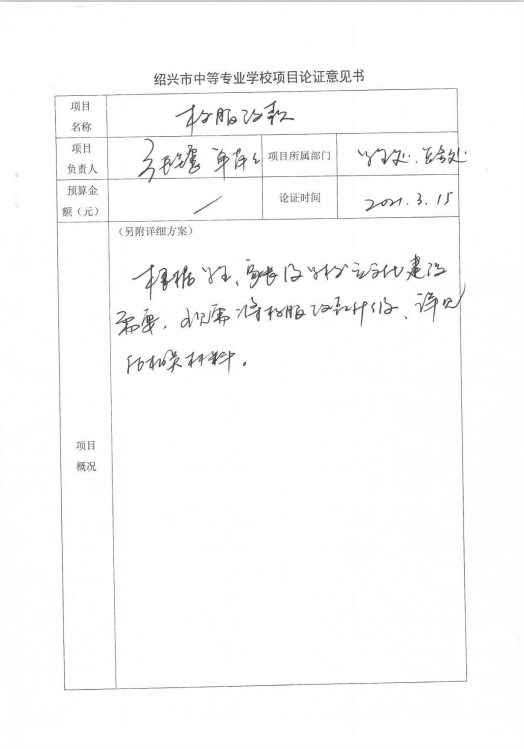 绍兴市中等专业学校项目论证意见书
项目
名称
校服改款
项目
负责人
项目所属部门
学生处、总务处
预算金
额（元）
／
论证时间
2021.3.15
（另附详细方案）
根据学生、家长及学校文化建设
需要，现需将校服改款升级、详见
附相关材料。
项目
概况